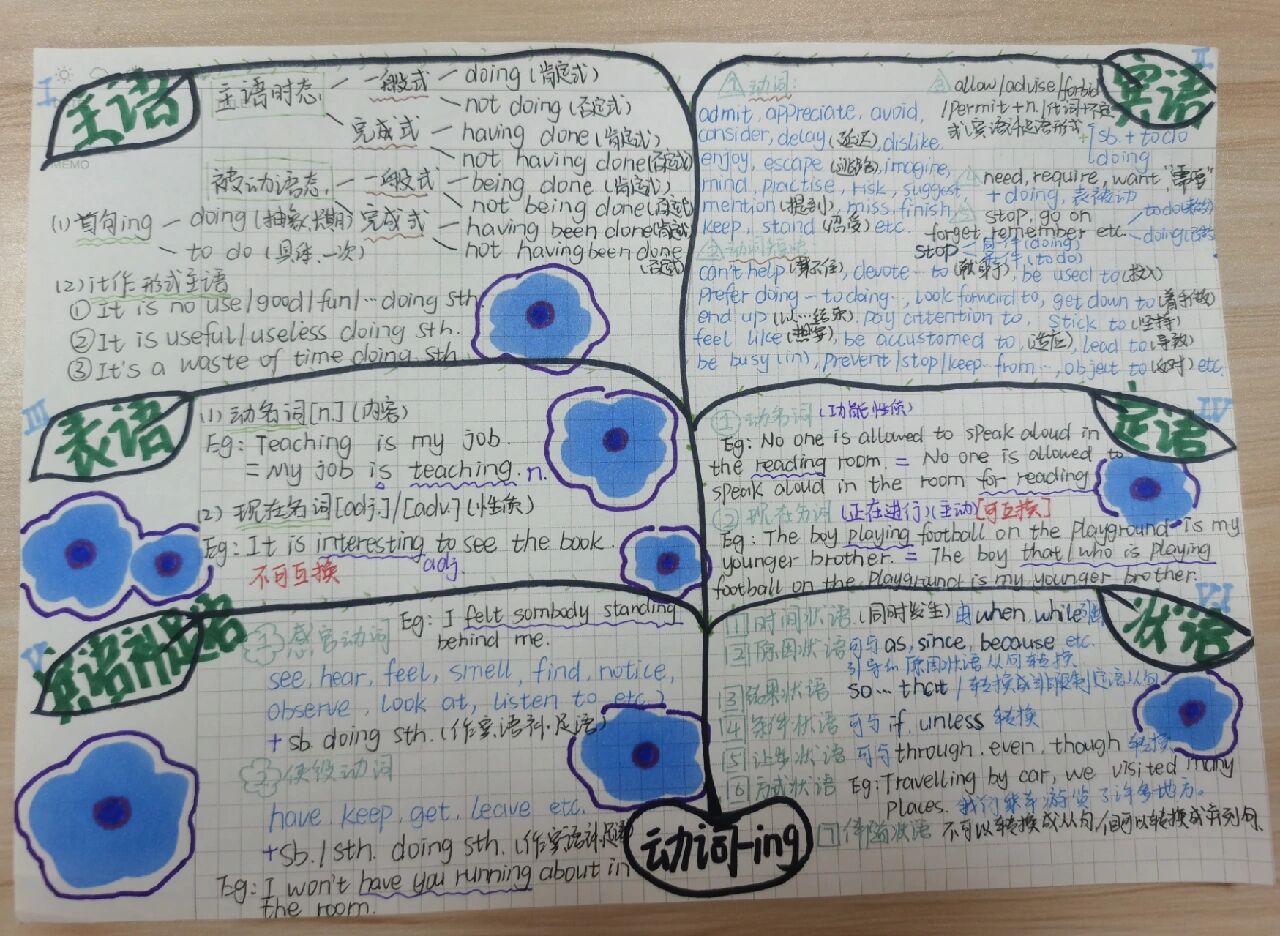 I
主语
主语时态
一般式
doing (肯定式)
not doing (否定式)
完成式
having done (肯定式)
not having done (否定式)
被动语态
一般式
being done (肯定式)
not being done (否定式)
完成式
having been done (肯定式)
not having been done
(否定式)
(1) 首句ing
doing (抽象、长期)
to do (具体、一次)
(2) it作形式主语
① It is no use/good/fun/…doing sth.
② It is useful/useless doing sth.
③ It's a waste of time doing sth.
MEMO
II
宾语
① 动词:
admit, appreciate, avoid,
consider, delay (延迟), dislike,
enjoy, escape (逃跑), imagine,
mind, practise, risk, suggest
mention (提到), miss, finish,
keep, stand (忍受) etc.
② 动词短语:
can't help (禁不住), devote … to (献身于), be used to
prefer doing … to doing …, look forward to, get down to
end up (以…结束), pay attention to, stick to (坚持)
feel like (想要), be accustomed to, (适应), lead to (导致)
be busy (in), prevent/stop/keep … from …, object to (反对) etc.
③ allow/advise/forbid
/permit + n./代词
sb. + to do
doing
④ need, require, want "需要"
+ doing, 表被动
⑤ stop, go on
forget, remember etc.
to do
doing
stop
(doing)
(to do)
III
表语
(1) 动名词[n] (内容)
Eg: Teaching is my job.
= My job is teaching. n.
(2) 现在分词[adj.]/[adv] (性质)
Eg: It is interesting to see the book.
adj.
不可互换
IV
定语
① 动名词 (功能性质)
Eg: No one is allowed to speak aloud in
the reading room. = No one is allowed to
speak aloud in the room for reading
② 现在分词 (正在进行)(主动)[可互换]
Eg: The boy playing football on the playground is my
younger brother. = The boy that/who is playing
football on the playground is my younger brother.
V
宾语补足语
① 感官动词
Eg: I felt sombody standing
behind me.
see, hear, feel, smell, find, notice,
observe, look at, listen to etc.
+ sb. doing sth. (作宾语补足语)
② 使役动词
have keep, get, leave etc.
+ sb./sth. doing sth. (作宾语补足语)
Eg: I won't have you running about in
the room.
VI
状语
1 时间状语 (同时发生) 由when, while
2 原因状语 可与as, since, because etc.
引导的原因状语从句转换
3 结果状语 so … that / 转换成非限制定语从句
4 条件状语 可与 if, unless 转换
5 让步状语 可与through, even, though 转换
6 方式状语 Eg: Travelling by car, we visited many
places. 我们乘车游览了许多地方。
7 伴随状语 不可以转换成从句,但可以转换成并列句.
动词-ing